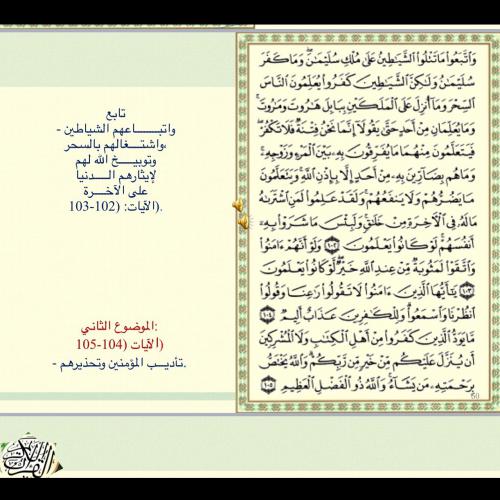 وَاتَّبَعُوا مَا تَتْلُوا الشَّيَاطِينُ عَلَىٰ مُلْكِ سُلَيْمَانَ وَمَا كَفَرَ
سُلَيْمَانُ وَلَٰكِنَّ الشَّيَاطِينَ كَفَرُوا يُعَلِّمُونَ النَّاسَ
السِّحْرَ وَمَا أُنزِلَ عَلَى الْمَلَكَيْنِ بِبَابِلَ هَارُوتَ وَمَارُوتَ
وَمَا يُعَلِّمَانِ مِنْ أَحَدٍ حَتَّىٰ يَقُولَا إِنَّمَا نَحْنُ فِتْنَةٌ فَلَا تَكْفُرْ
فَيَتَعَلَّمُونَ مِنْهُمَا مَا يُفَرِّقُونَ بِهِ بَيْنَ الْمَرْءِ وَزَوْجِهِ
وَمَا هُم بِضَارِّينَ بِهِ مِنْ أَحَدٍ إِلَّا بِإِذْنِ اللَّهِ وَيَتَعَلَّمُونَ
مَا يَضُرُّهُمْ وَلَا يَنفَعُهُمْ وَلَقَدْ عَلِمُوا لَمَنِ اشْتَرَاهُ
مَا لَهُ فِي الْآخِرَةِ مِنْ خَلَاقٍ وَلَبِئْسَ مَا شَرَوْا بِهِ
أَنفُسَهُمْ لَوْ كَانُوا يَعْلَمُونَ ١٠٢ وَلَوْ أَنَّهُمْ ءَامَنُوا
وَاتَّقَوْا لَمَثُوبَةٌ مِّنْ عِندِ اللَّهِ خَيْرٌ لَّوْ كَانُوا يَعْلَمُونَ
١٠٣ يَا أَيُّهَا الَّذِينَ ءَامَنُوا لَا تَقُولُوا رَاعِنَا وَقُولُوا
انظُرْنَا وَاسْمَعُوا وَلِلْكَافِرِينَ عَذَابٌ أَلِيمٌ ١٠٤
مَّا يَوَدُّ الَّذِينَ كَفَرُوا مِنْ أَهْلِ الْكِتَابِ وَلَا الْمُشْرِكِينَ
أَن يُنَزَّلَ عَلَيْكُم مِّنْ خَيْرٍ مِّن رَّبِّكُمْ وَاللَّهُ يَخْتَصُّ
بِرَحْمَتِهِ مَن يَشَاءُ وَاللَّهُ ذُو الْفَضْلِ الْعَظِيمِ ١٠٥
50
تابع
- واتبـــــاعهم الشياطين
،واشتــغالهم بالسحر
وتوبيــــخ الله لهم
لإيثارهم الـــدنيا
على الآخــرة
.(الآيات: (102-103
:الموضوع الثاني
(الآيات (104-105
- تأديـــب المؤمنين وتحذيرهم.